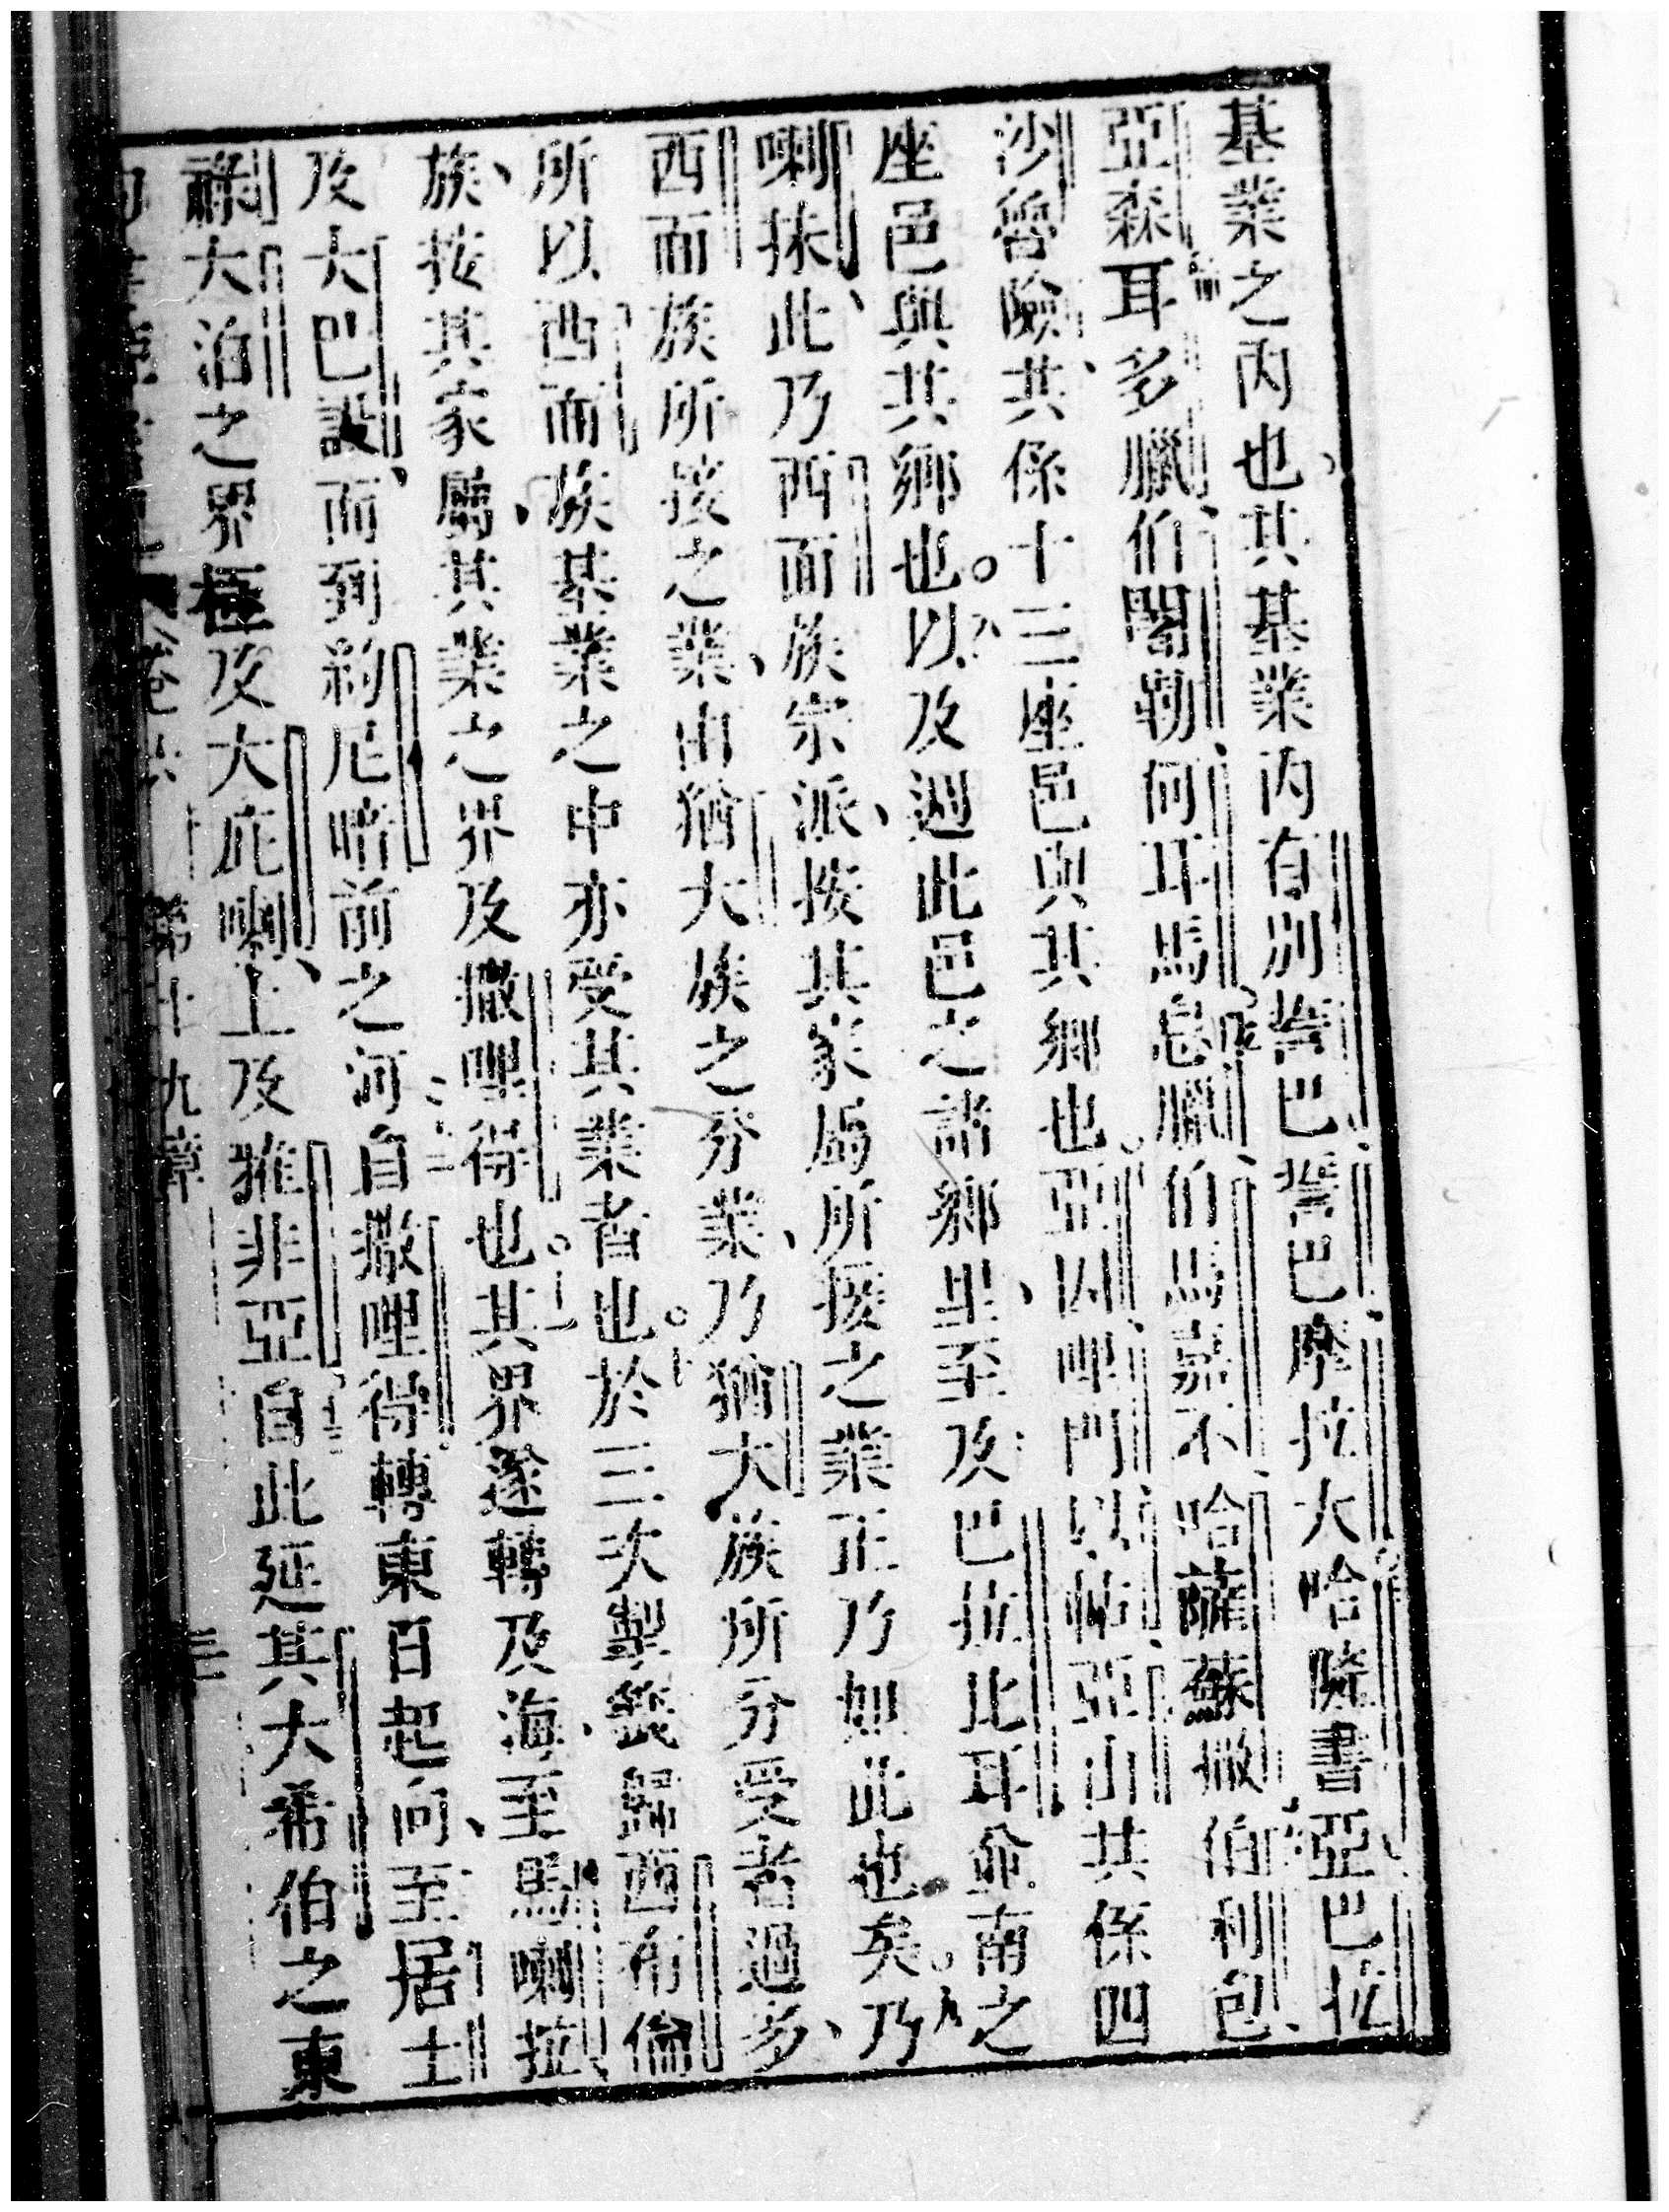 基業之內也其基業內有別𠾖巴𠾖巴摩拉大哈隆書亞巴拉
亞森耳多臘伯闍勒何耳馬息臘伯馬嘉不哈薩蘇撒伯利包
沙魯險共係十三座邑與其鄉也亞因哩門以帖亞山共係四
座邑與其鄉也以及週此邑之諸鄉里至及巴拉比耳並南之
喇抹此乃西面族宗派按其家屬所接之業正乃如此也矣乃
西面族所接之業由猶大族之分業乃猶大族所分受者過多
所以西面族基業之中亦受其業者也於三次掣籤歸西布倫
族按其家屬其業之界及撒哩得也其界遂轉及海至馬喇拉
及大巴設而到約尼暗前之河自撒哩得轉東日起向至居士
祿大泊之界極及大庇喇上及雅非亞自此延其大希伯之東
卷六 第十九章 三